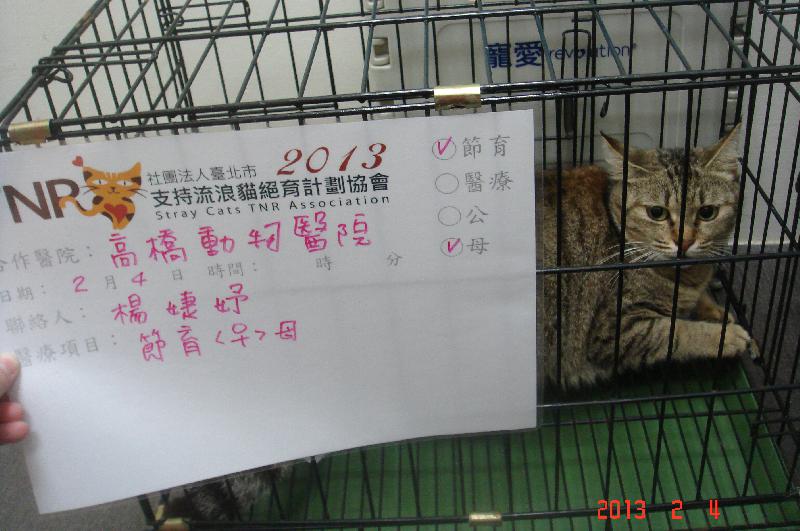 寵愛 revolution
TNR 社團法人臺北市 2013
支持流浪貓絕育計劃協會
Stray Cats TNR Association
節育
醫療
公
母
合作醫院：高橋動物醫院
日期：2月4日 時間： 時 分
聯絡人：楊婕妤
醫療項目：節育〈孕〉母
2013 2 4